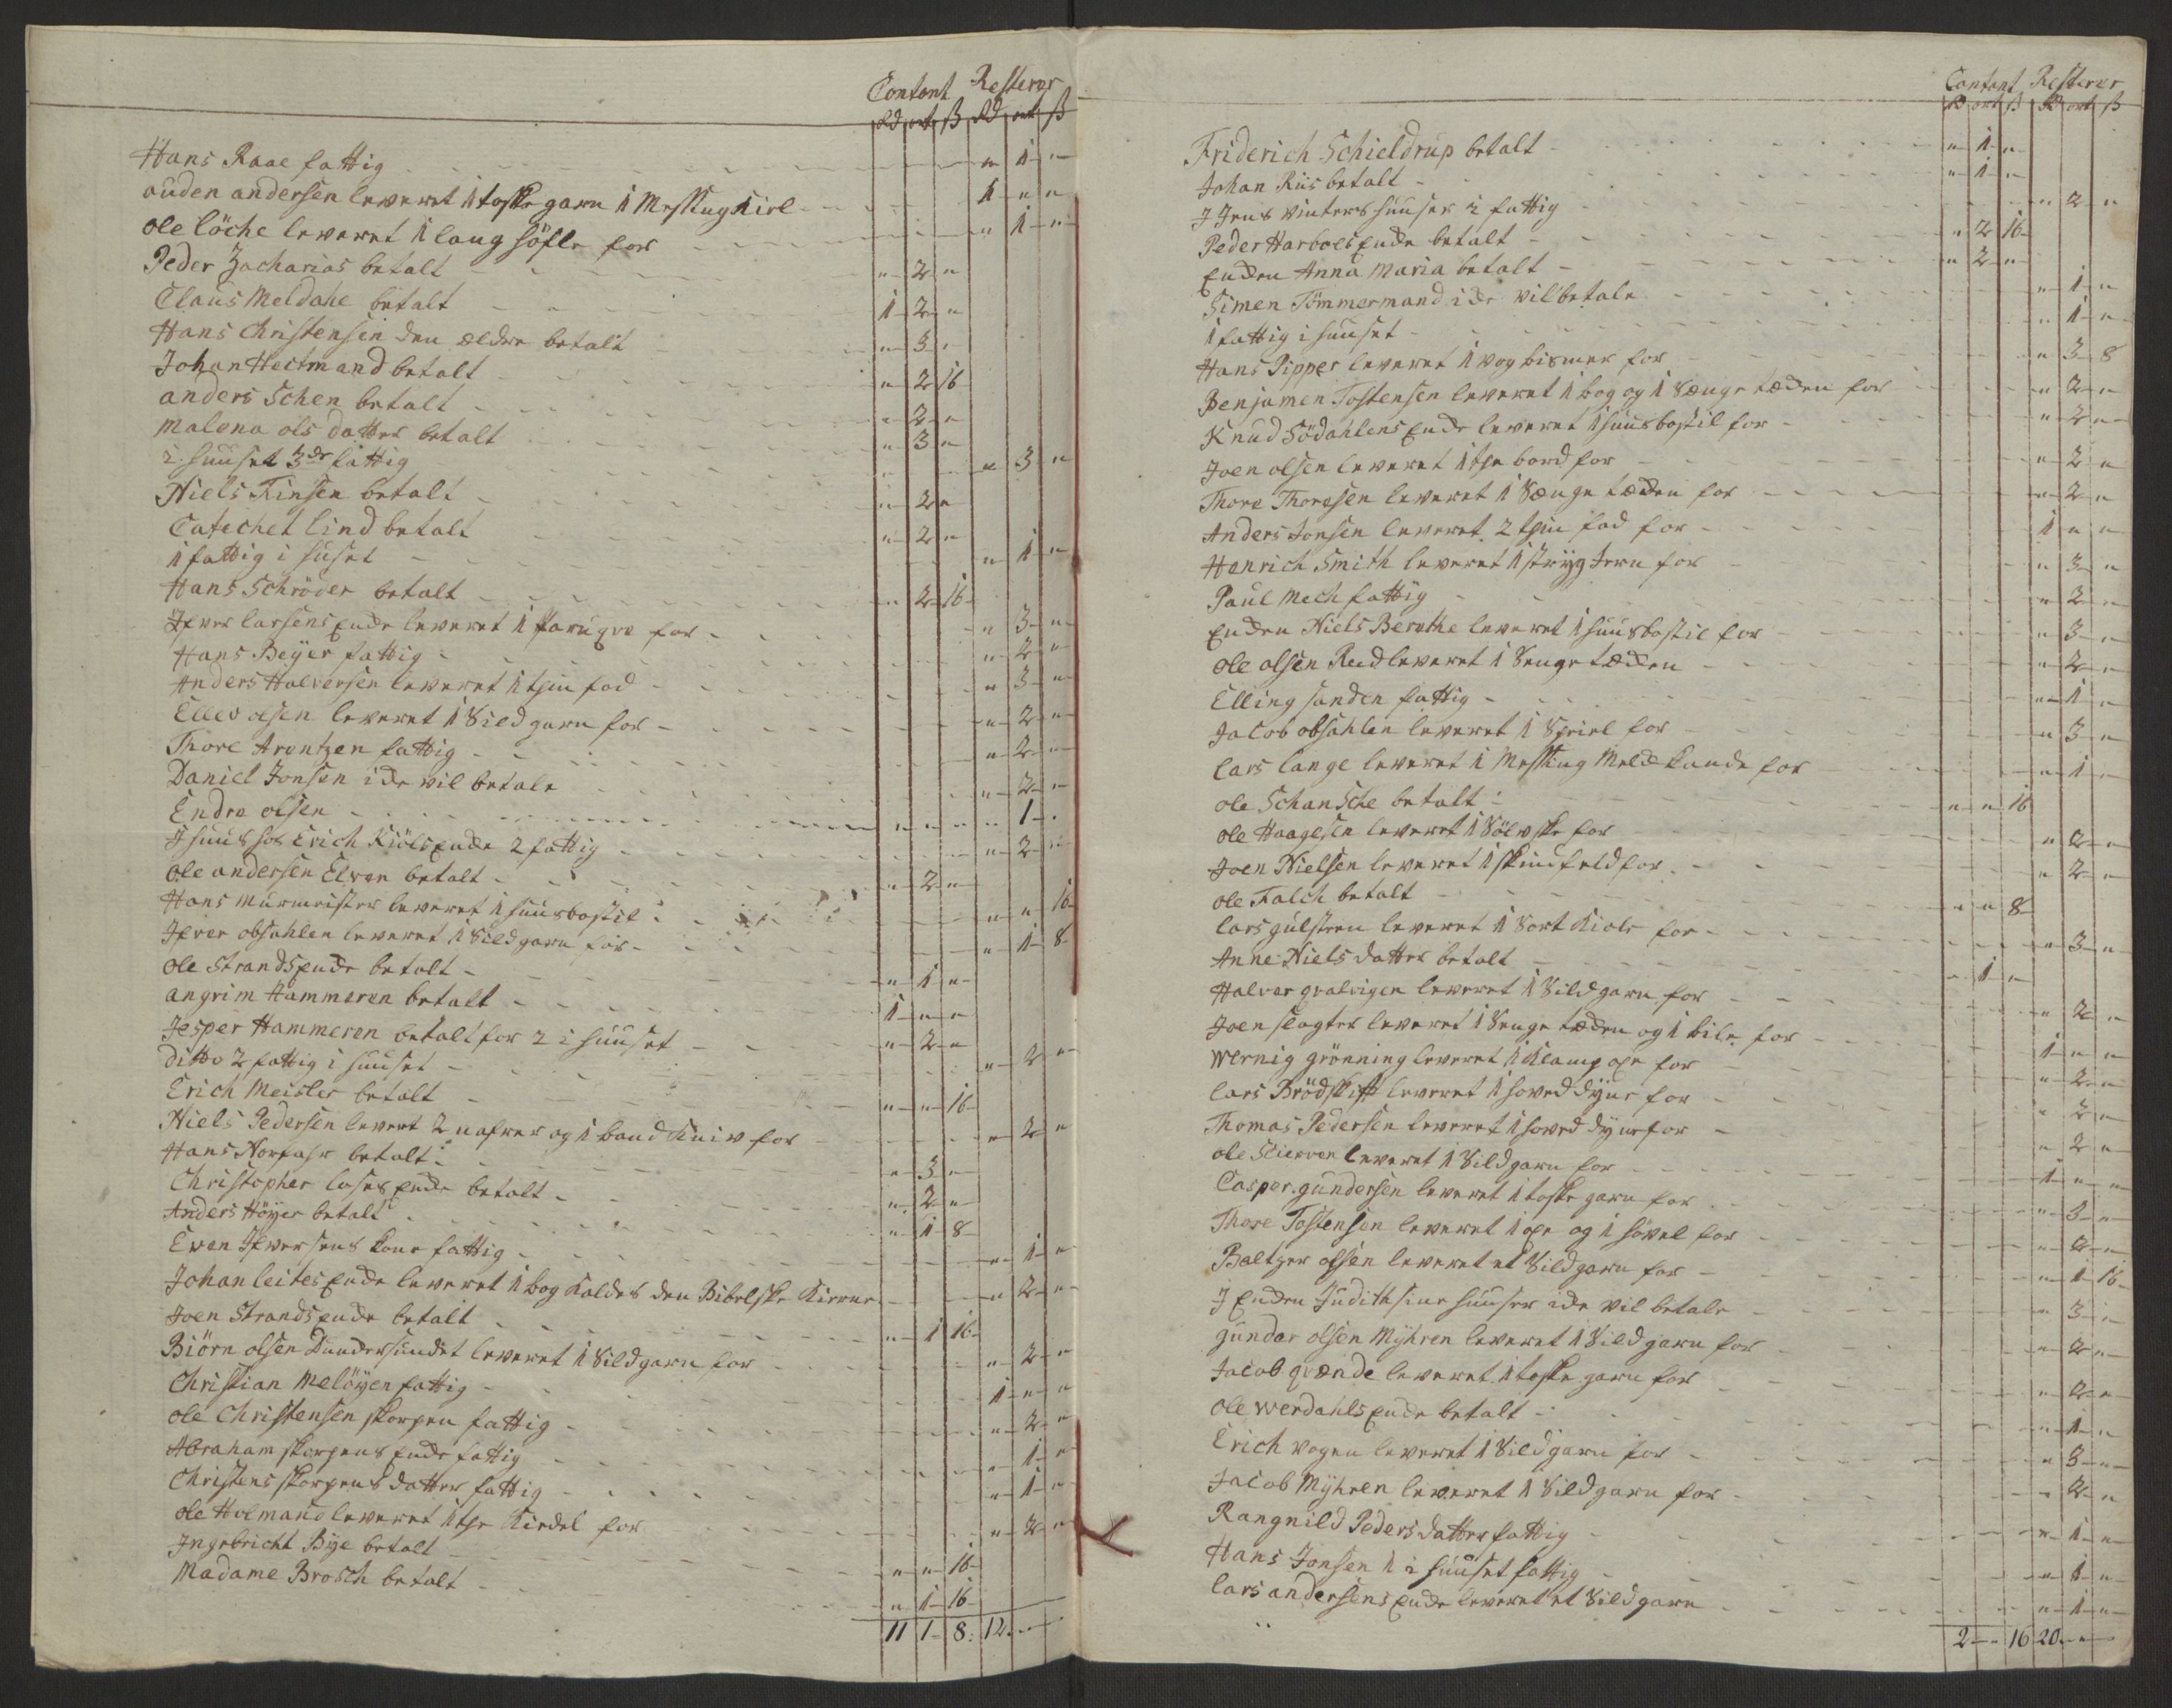 Contant Resterer
Rd ort ß Rd ort ß
Hans Raae fattig " 1 "
auden andersen leveret 1 toske garn 1 Messing Kiel 1 " "
ole löche leveret 1 lang höfle for " 1 "
Peder Zacharias betalt " 2 "
Claus Meldahe betalt 1 2 "
Hans Christensen den ældre betalt " 3 "
Johan Hectmand betalt " 2 16
anders Schen betalt " 2 "
Malena ols datter betalt " 3 "
i huuset 3de fattig " 3 "
Niels Finsen betalt " 2 "
Catechet lind betalt " 2 "
1 fattig i huset " 1 "
Hans Schröder betalt " 2 16
Ifver larsens Enke leveret 1 for " 3 "
Hans Beÿer fattig " 2 "
Anders Halversen leveret 1 thin fad " 3 "
Ellev olsen leveret 1 Sild garn for " 2 "
Thore Arentzen fattig " 2 "
Daniel Jonsen ide vil betale " 2 "
Endre olsen " " " " 1 "
I huus hos Erich Kiöls Enke 2 fattig " 2 "
ole andersen Elven betalt " 2 "
Hans Murmeister leveret 1 huusbostil " " 16
Ifver obsahlen leveret 1 Sildgarn for " 1 8
ole Strands Enke betalt " 1 "
angrim Hammeren betalt 1 " "
Jesper Hammeren betalt for 2 i huuset " 2 "
ditto 2 fattig i huuset " 2 "
Erich Meisler betalt " " 16
Niels Pedersen levert 2 nafver og 1 baand Kniv for " 2 "
Hans Norfahr betalt " 3 "
Christopher loses Enke betalt " 2 "
Anders Höÿer betalt " 1 8
Even Ifversens Kone fattig " 1 "
Johan leites Enke leveret 1 bog Kaldes den Bibelske Kierne " 2 "
Joen Strands Enke betalt " 1 16
Biörn olsen Dundersundet leveret 1 Sildgarn for " 2 "
Christian Melöÿen fattig 1 " "
ole Christensen skorpen fattig " 2 "
Abraham skorpens Enke fattig " 1 "
Christens skorpens datter fattig " 1 "
ole Holmand leveret 1 the Kiedel for " 2 "
Ingebricht Bÿe betalt " " 16
Madame Brosch betalt " 1 16
11 1 8 12 "
Contant Resterer
Rd ort ß Rd ort ß
Friderich Schieldrup betalt " 1 "
Johan Riis betalt " 1 "
I Jens Vinters huuser 2 fattig " 2 "
Peder Harboes Enke betalt " 2 16
Enken Anna Maria betalt " 2 "
Simen Tömmermand ide vil betale " 1 "
1 fattig i huuset " 1 "
Hans Pipper leveret 1 vog bismer for " 3 8
Benjamen Tostensen leveret 1 bog og 1 Senge tæden for " 2 "
Knud Södahlens Enke leveret 1 huusbostil for " 2 "
Joen olsen leveret 1 the bord for " 2 "
Thore Thoresen leveret 1 Senge tæden for " 2 "
Anders Jonsen leveret 2 thin fad for 1 " "
Henrich Smith leveret 1 strÿg Jern for " 3 "
Paul Mech fattig " 2 "
Enken Niels Berethe leveret 1 huusbostil for " 3 "
ole olsen Rud leveret 1 Senge tæden " 2 "
Elling sanden fattig " 1 "
Jacob obsahlen leveret 1 Speiel for " 3 "
lars lange leveret 1 Messing Melk kande for " 1 "
ole Schansche betalt " " 16
ole Haagesen leveret 1 Sölvske for " 2 "
Joen Nielsen leveret 1 skindfeld for " 2 "
ole Falch betalt " " 8
lars gulstren leveret 1 Sort Kiole for " 3 "
Anne Niels datter betalt " 1 "
Halver leveret 1 Sildgarn for " 2 "
Joen slagter leveret 1 Senge tæden og 1 bile for 1 " "
Wernig grönning leveret 1 for " 2 "
lars Brödskift leveret 1 hoved dÿne for " 2 "
Thomas Pedersen leveret 1 hoved dÿne for " 2 "
ole Scierven leveret 1 Sildgarn for 1 " "
Casper gundersen leveret 1 toske garn for " 3 "
Thore Tostensen leveret 1 øxe og 1 hövel for " 2 "
Baltzer olsen leveret et Sildgarn for " 1 16
I Enken Judith sine huuser ide vil betale " 3 "
gunder olsen Mÿhren leveret 1 Sildgarn for " 2 "
Jacob qvænde leveret 1 toske garn for " 2 "
ole Werdahls Enke betalt " 1 "
Erich vogen leveret 1 Sildgarn for " 3 "
Jacob Mÿhren leveret 1 Sildgarn for " 2 "
Rangnild Peders datter fattig " 1 "
Hans Jonsen 1 i huuset fattig " 1 "
lars andersens Enke leveret et Sildgarn " 1 "
2 " 16 20 "